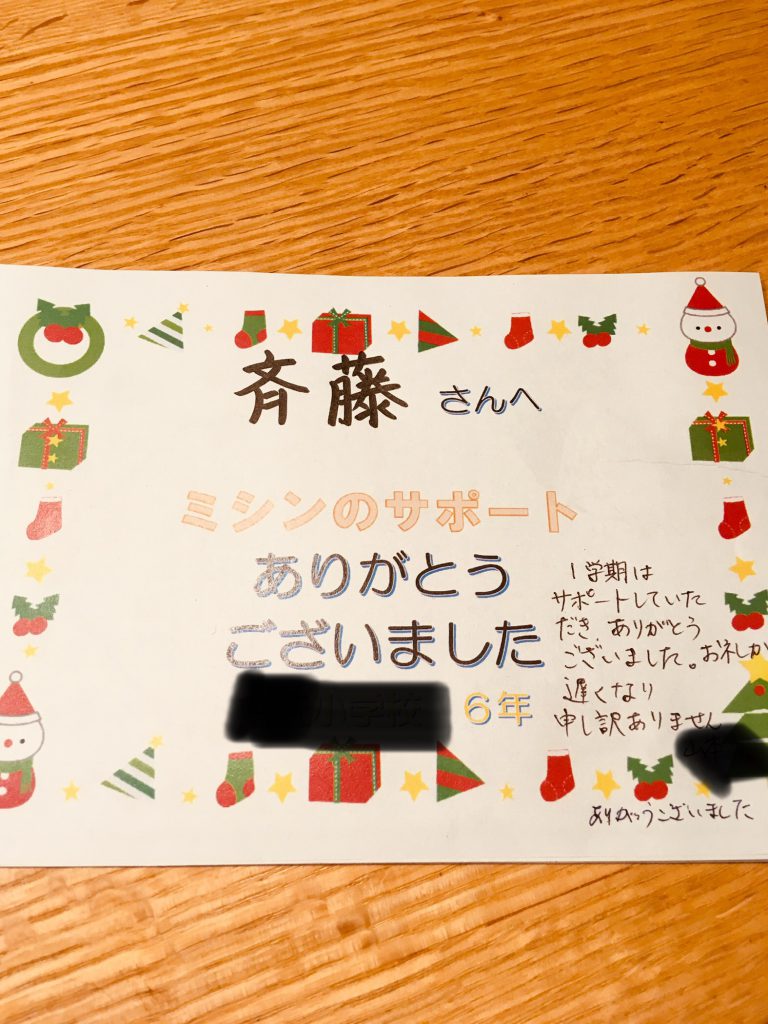 斉藤 さんへ
ミシンのサポート
ありがとう
ございました
小学校 6年
1学期は
サポートしていた
だき、ありがとう
ございました。お礼が
遅くなり
申し訳ありません
ありがとうございました